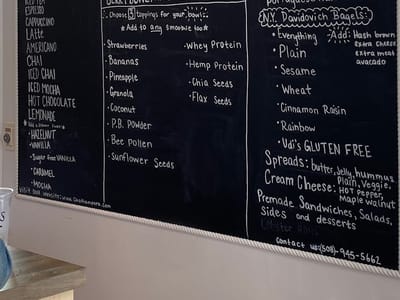 ICED TEA
ESPRESSO
CAPPUCCINO
LATTE
AMERICANO
CHAI
ICED CHAI
ICED MOCHA
HOT CHOCOLATE
LEMONADE
• HAZELNUT
• VANILLA
• Sugar free VANILLA
• CARAMEL
• MOCHA
: Choose 5 toppings for your bowl!
* Add to any smoothie too *
• Strawberries
• Bananas
• Pineapple
• Granola
• Coconut
• P.B. Powder
• Bee Pollen
• Sunflower Seeds
• Whey Protein
• Hemp Protein
• Chia Seeds
• Flax Seeds
N.Y. Davidovich Bagels:
• Everything
• Plain
• Sesame
• Wheat
• Cinnamon Raisin
• Rainbow
• Udi's GLUTEN FREE
Add: Hash brown
Extra cheese
extra meat
avocado
Spreads: butter, Jelly, hummus
Cream Cheese: Plain, Veggie,
HOT Pepper,
Maple walnut
Premade Sandwiches, Salads,
sides and desserts
Contact us: (508)-945-5662